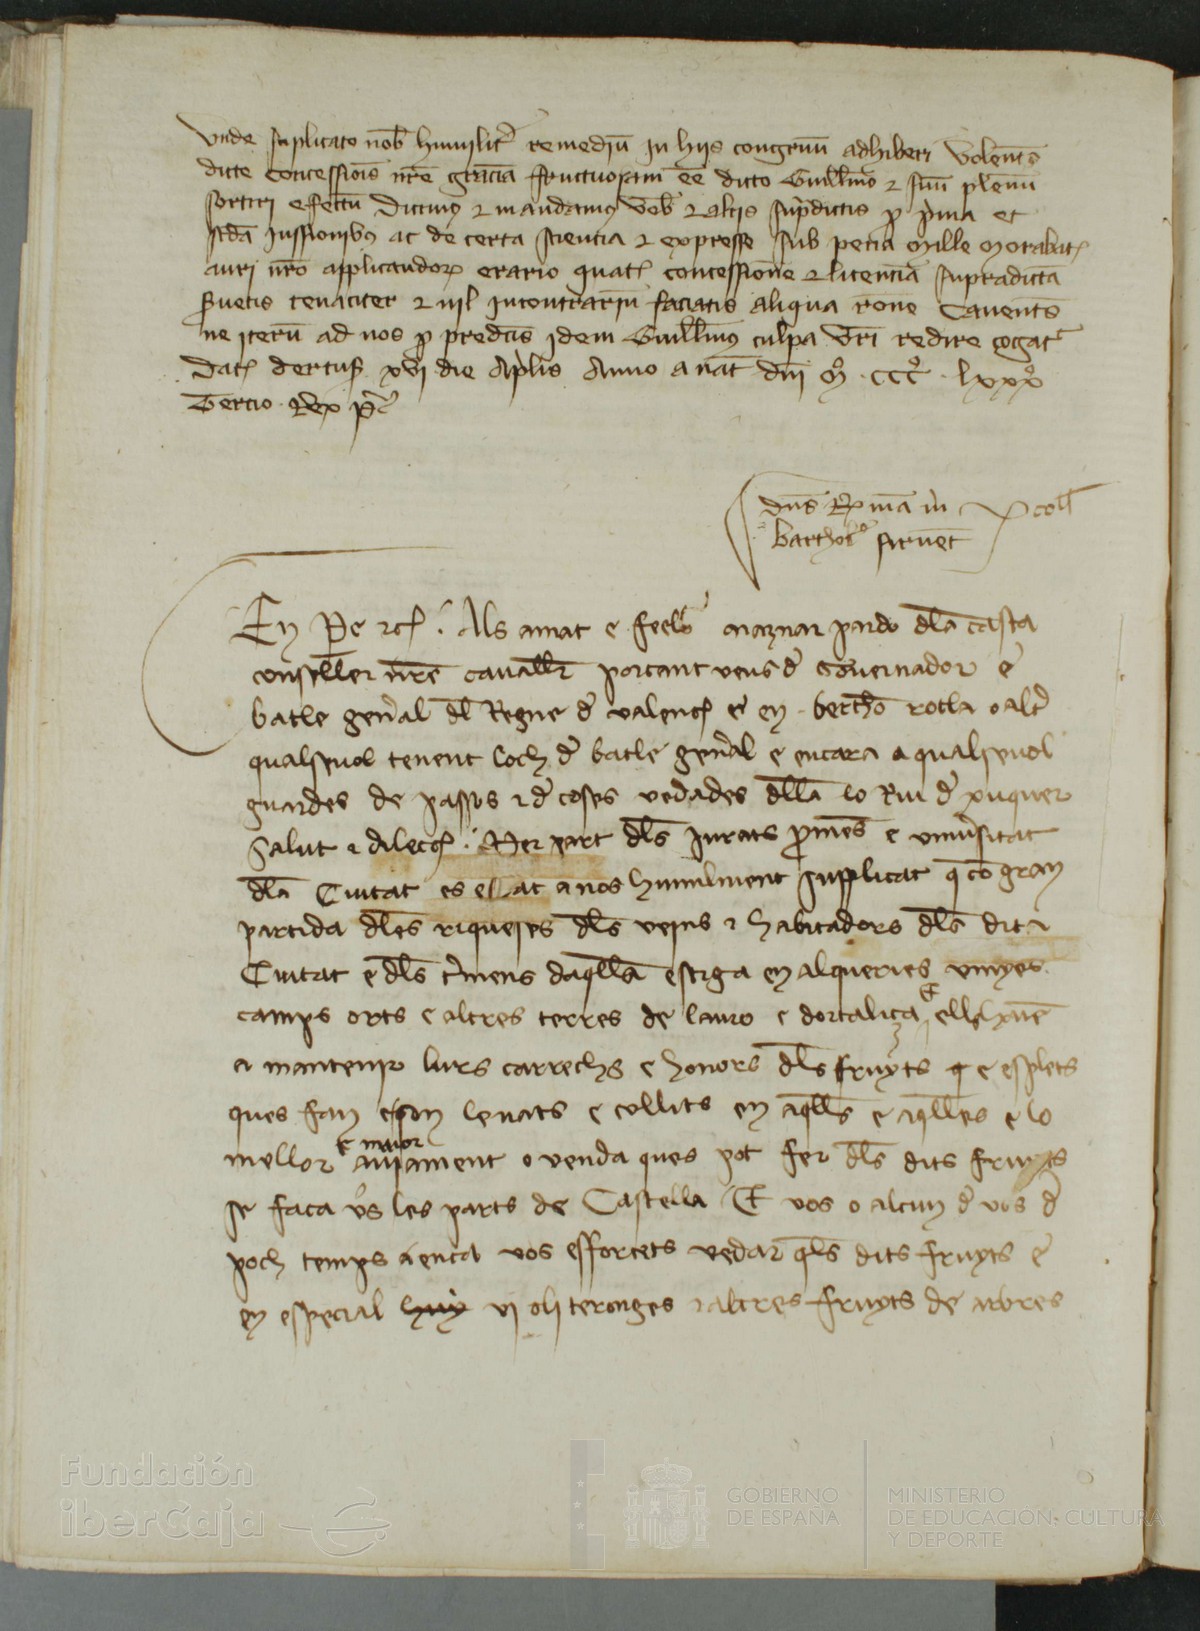 Unde suplicato nob humilit remediu in hiis congruu adhiberi Volents
dicte concessiois nre graciam fructuosam ee dicto Guillmo ⁊ suu plenu
sortiri efectu Dicimus ⁊ mandamus Vob ⁊ aliis supdictis p pma et
scda iussionibus ac de certa sciencia ⁊ expresse sub pena Mille Morabat
auri nro applicandor erario quat concessione ⁊ licencia supradicta
svetis tenaciter ⁊ nil incontrariu faciatis aliqua rone Cavents
ne iteru ad nos p predcs idem Guillmus culpa Vri redire cogat
Dat dertus xvi die Aplis Anno a nat dni Mº CCCº lxxxº
Tercio Rex P
dns Rex ma m
Bartholº sirvent
En Pe ⁊c Als amat e feels aznar pardo dla casta
conseller nre cavallr portant veus d Governador e
batle genal dl Regne d valenc e en bertho rotla o altr
qualsevol tenent loch d batle genal e encara a qualsevol
guardes de passos ⁊ d coses vedades dlla lo Riu d xuquer
Salut ⁊ dilecc Per part dls Jurats pmes e univsitat
dla Ciutat es estat a nos humilment supplicat q co gran
partida dles riqueses dls vehins ⁊ habitadors dls dita
Ciutat e dls tmens daqlla estiga en alqueries vinyes
camps orts e altres terres de lauro e dortaliça e ells
a mantenir lurs carrechs e honors dls fruyts q e esplets
ques fan e son levats e collits en aqlls e aqlles e lo
mellor e maior aviament o venda ques pot fer dls dits fruyts
se faca vs les parts de Castella Et vos o alcun d vos d
poch temps aenca vos esforcets vedar qls dits fruyts e
en especial vi oli teronges ⁊ altres fruyts de arbres
Fundación
iberCaja
GOBIERNO
DE ESPAÑA
MINISTERIO
DE EDUCACIÓN, CULTURA
Y DEPORTE